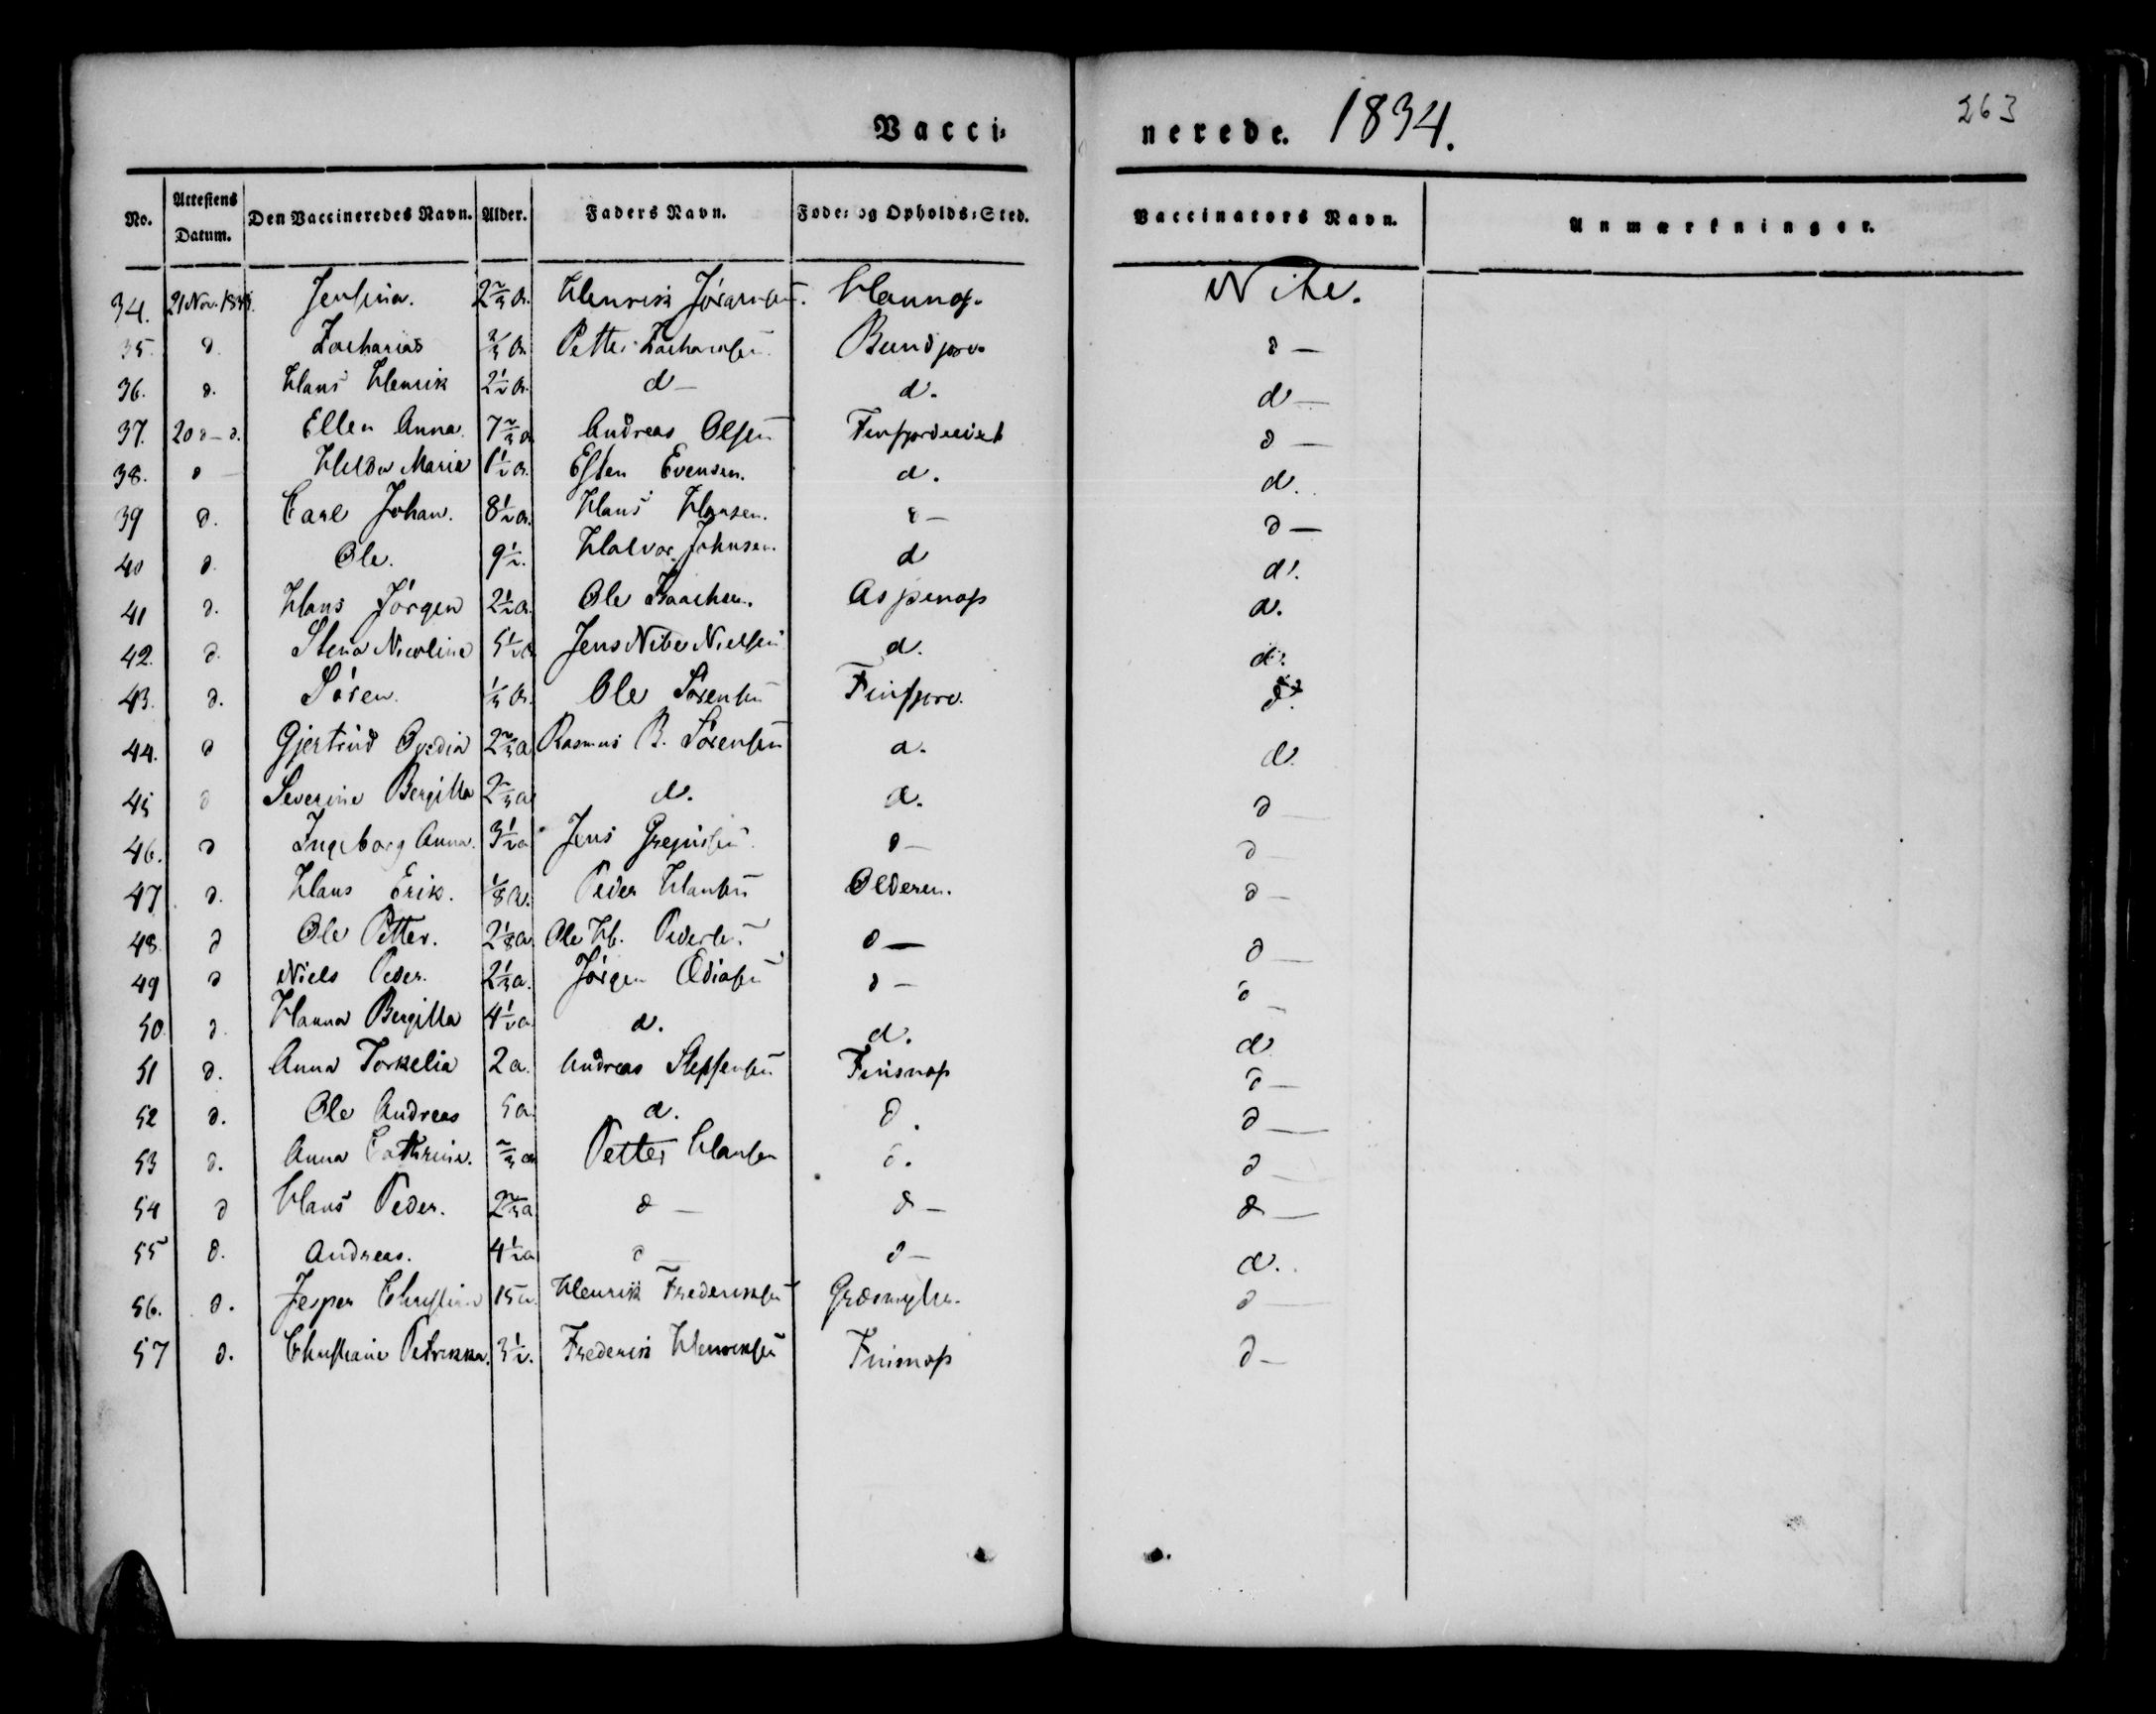 Vacci=
nerede. 1834.
263
No. Attestens Datum. Den Vaccineredes Navn. Alder. Faders Navn. Føde= og Opholds=Sted. Vaccinators Navn. Anmærkninger.
34. 21 Nov. Jensina. 2 2/3 a. Henrik Nibe.
35. d. Zacharias a. Petter Zachariasen d —
36. d. Hans Henrik 2 1/2 a. d — d. d —
37. 20 d — d. Ellen Anna. 7 2/3 a Andreas Olsen d —
38. d — Maria 1 1/2 a. Esten Evensen. d. d.
39 d. Carl Johan. 8 1/2 a. Hans Hansen. d — d —
40 d. Ole. 9 1/2. Halvor Johnsen. d d.
41 d. Hans Jörgen 2 1/2 a. Ole Isaachsen. Aspenæs d.
42. d. Nicoline 5 1/2 a Jens Nibe Nielsen d. d.
43. d. Sören. 1/3 a. Ole Sörensen Finfjord. d.
44. d Gjertrud 2 2/3 a Rasmus B. Sörensen d. d.
45 d Severine Bergitta 2 2/3 a d. d. d
46. d Ingeborg Anna. 3 1/2 a Jens d — d —
47 d. Hans Erik. 1/8 a. Peder Hansen Olderen. d —
48. d Ole Petter. 2 1/8 a Ole H. Pedersen d — d —
49 d Niels Peder. 2 1/3 a. Jörgen d — d —
50. d. Hanna Bergitta 4 1/2 a d. d. d
51 d. Anna Torkelia 2 a. Andreas Steffensen Finsnæs d —
52 d. Ole Andreas 5 a. d. d. d —
53 d. Anna Cathrina. 2/3 a Petter Hansen d. d —
54 d Hans Peder. 2 2/3 a d — d — d —
55 d. Andreas. 4 1/2 a d — d — d.
56. d. Jesper 15 a. Henrik Frederiksen d —
57 d. Christiane Petrikka. 3 1/2. Frederik Henriksen Finsnæs d —